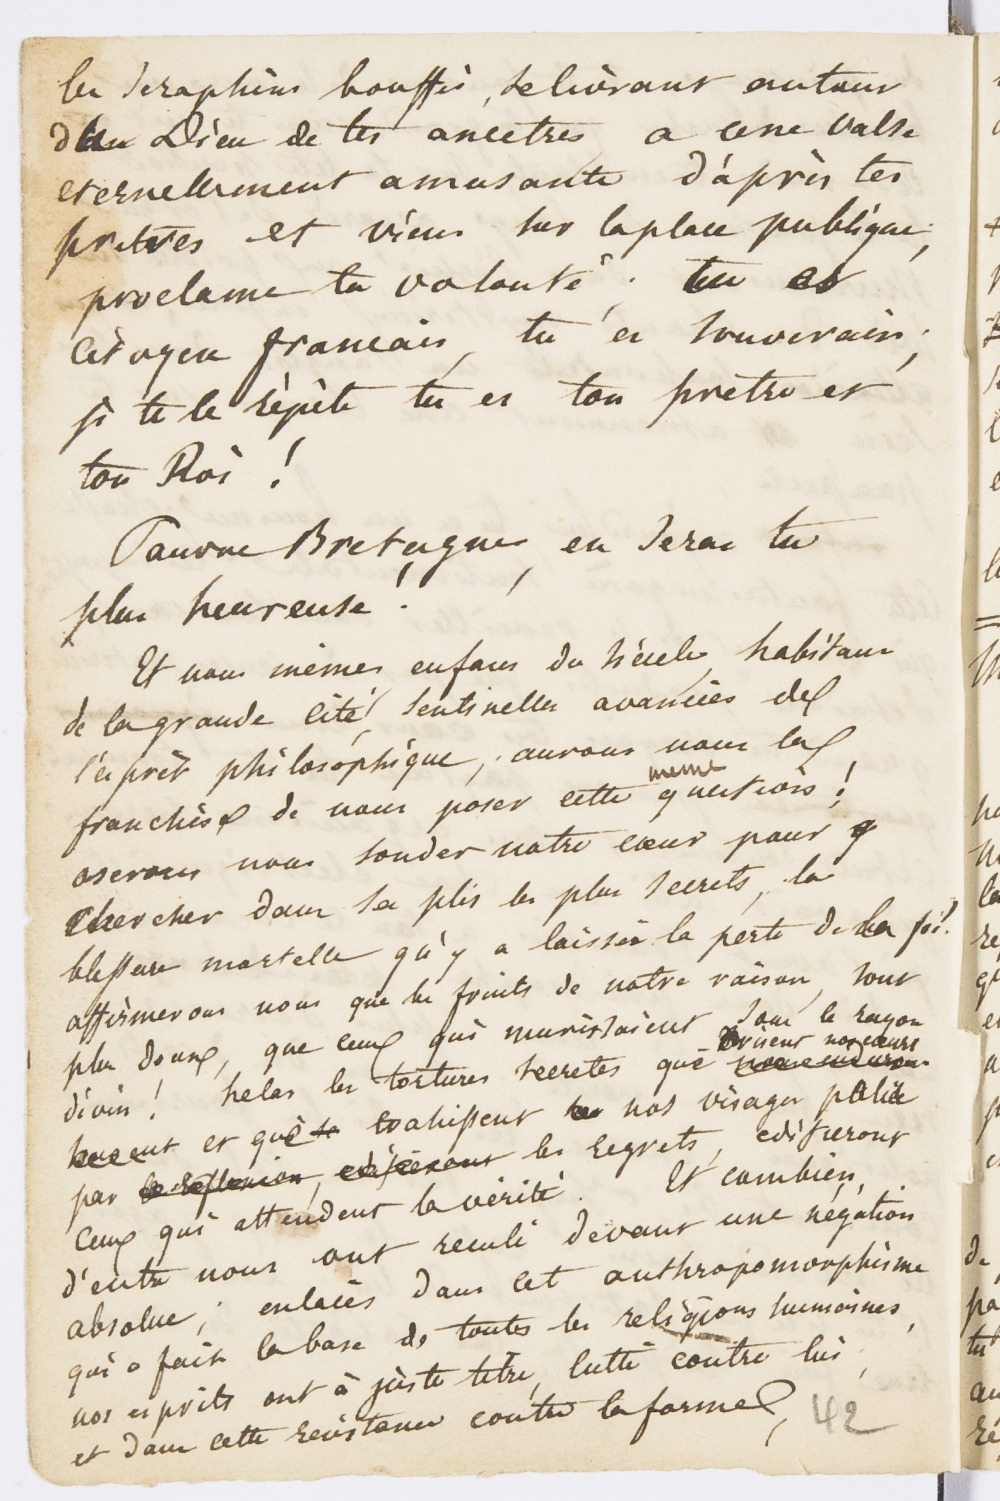 les Seraphins bouffis, se livrant autour
d'un Dieu de tes ancetres a cene valse
eternellement amusante d'après tes
pretres et viens sur la place publique,
proclame ta volonté; tu es
Citoyen francais, tu es souverain;
je te le répète tu es ton pretre et
ton Roi !
Pauvre Bretagne, en seras tu
plus heureuse !
Et nous mêmes enfans du siécle, habitans
de la grande cité, sentinelles avancées de
l'esprit philosophique, aurons nous la
franchise de nous poser cette même question !
oserons nous sonder notre cœur pour y
Chercher dans ses plis les plus secrets, la
blessure mortelle qu'y a laissée la perte de la foi.
affirmerons nous que les fruits de notre raison, sont
plus doux, que ceux qui murissaient sous le rayon
divin ! helas les tortures secretes que brisent nos cœurs
et qui trahissent nos visages palis
par les regrets, edifieront
Ceux qui attendent la vérité. Et combien,
d'entre nous ont reculé devant une négation
absolue; enlacés dans cet anthropomorphisme
qui a fait la base de toutes les religions humaines,
nos esprits ont à juste titre, lutté contre lui,
et dans cette résistance contre la forme,
42